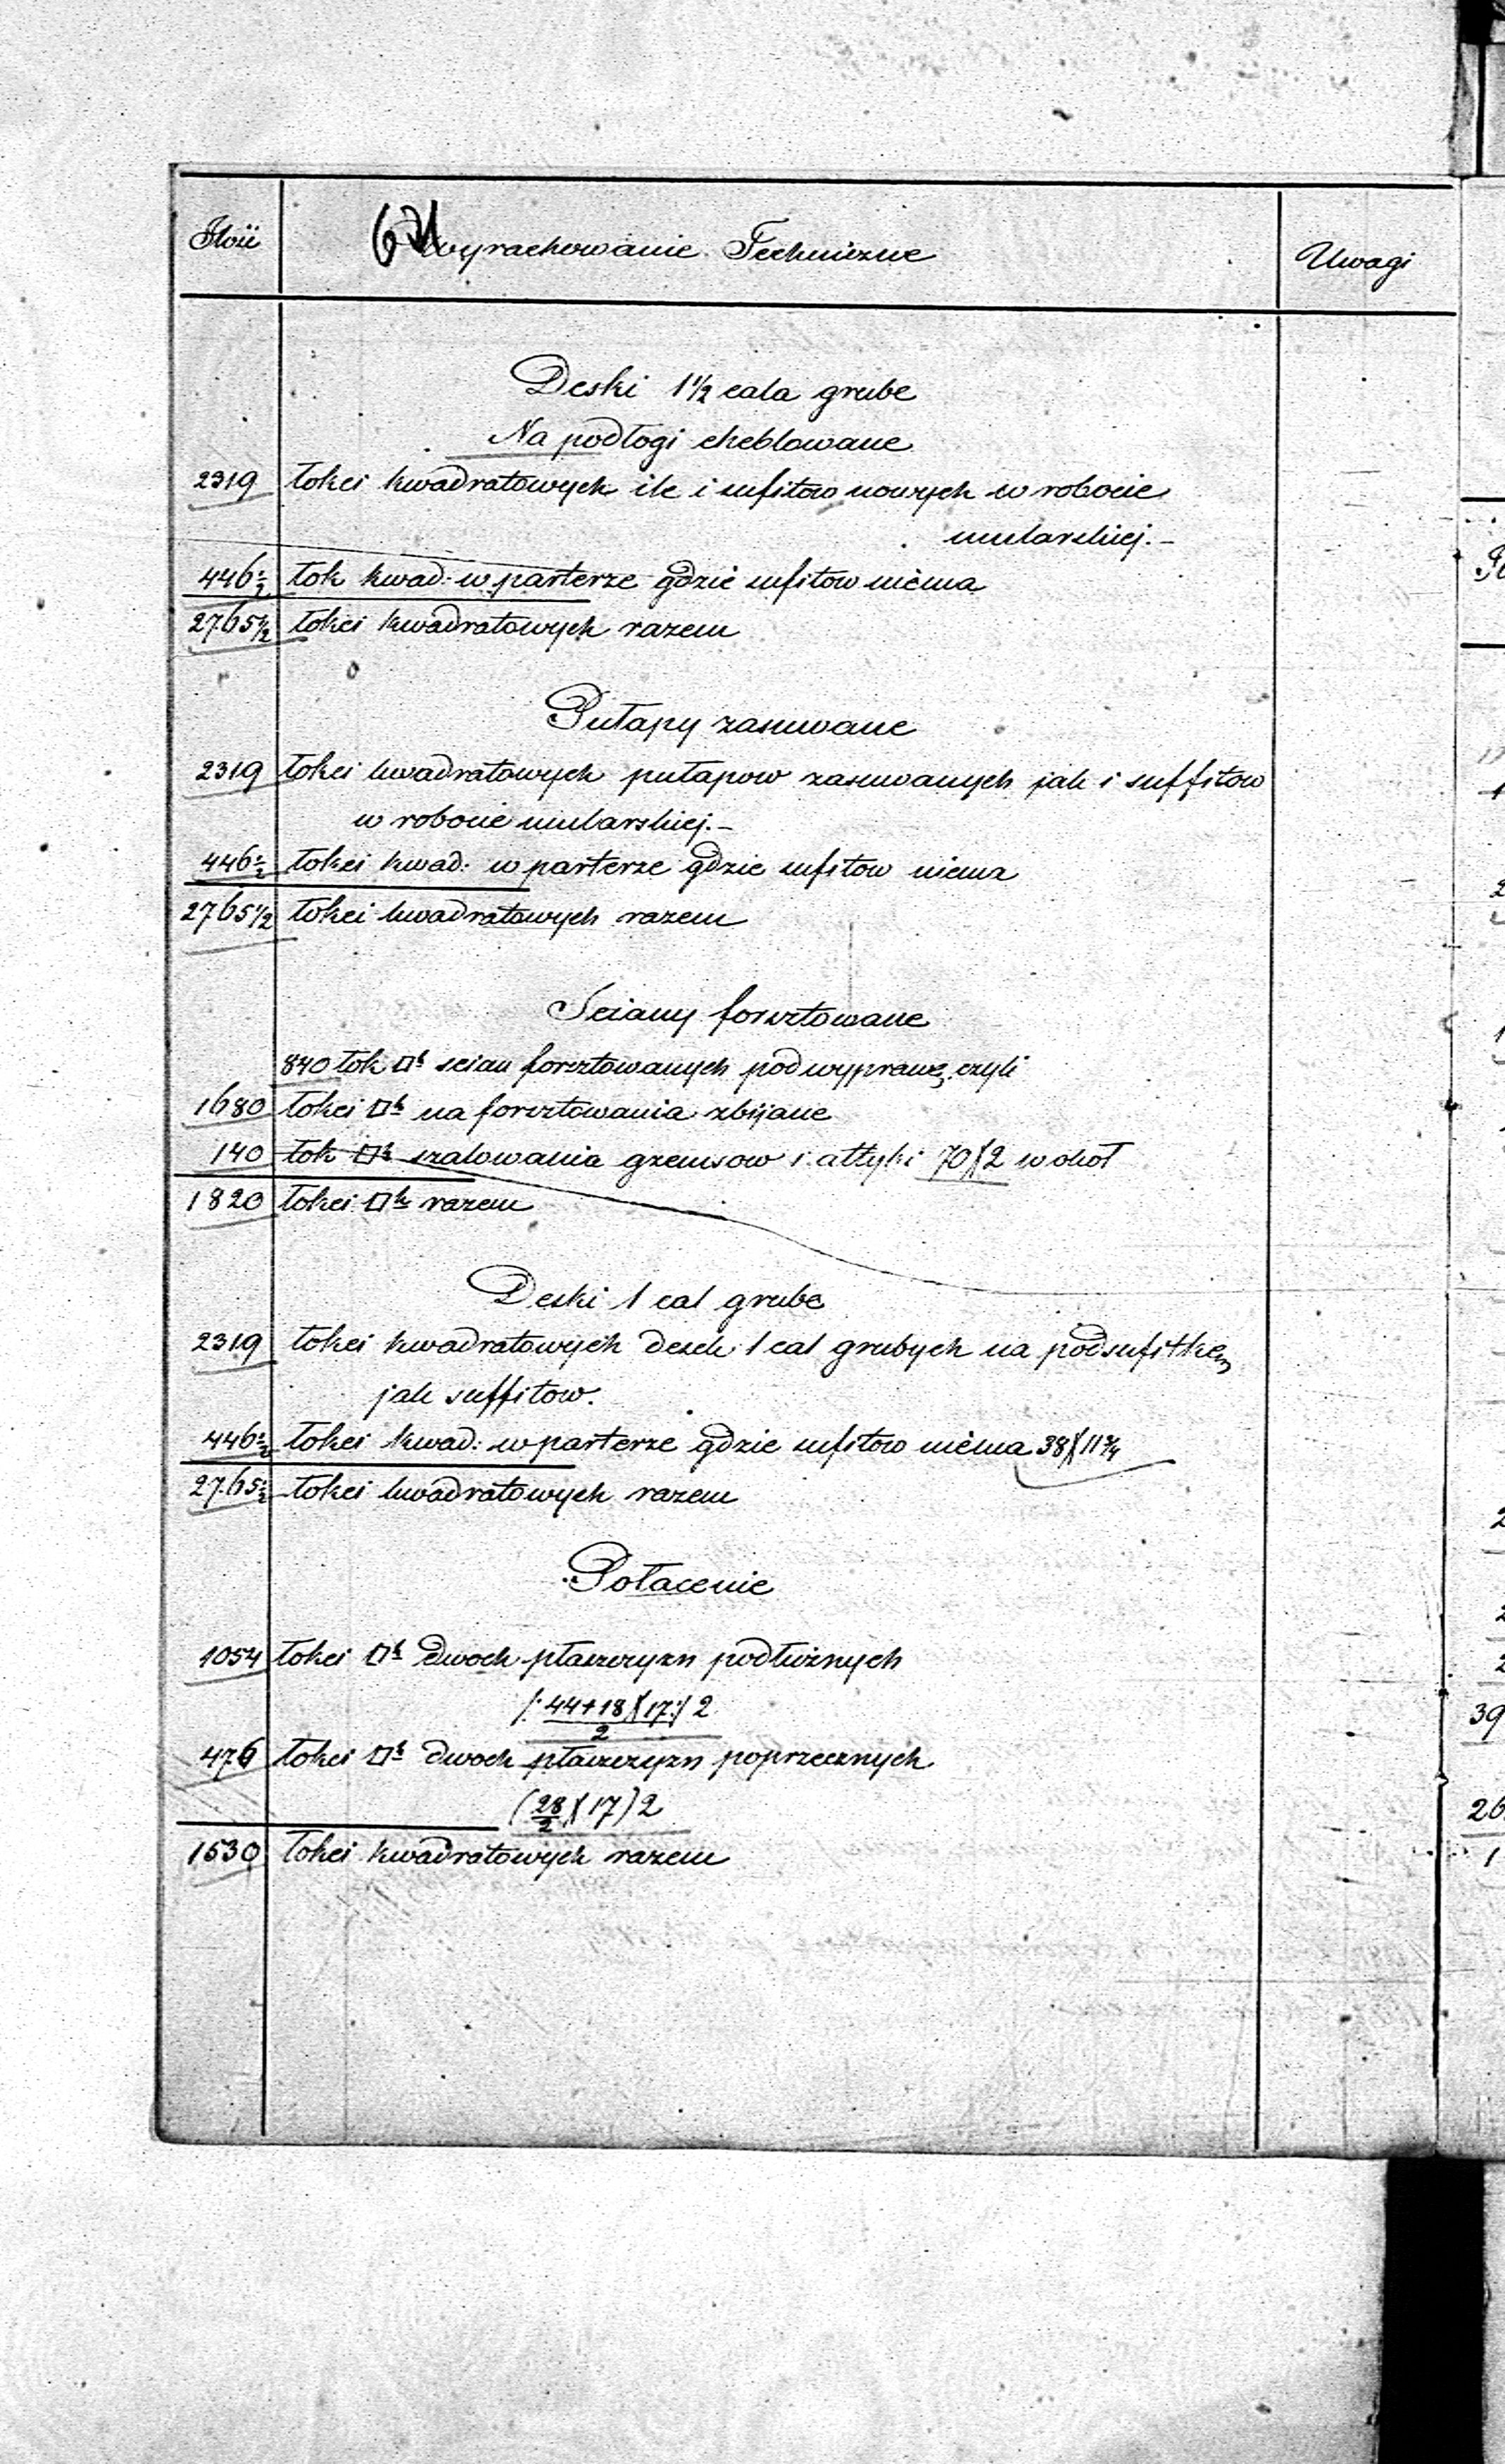 Ilość Wyrachowanie Techniczne Uwagi
Deski 1½ cala grube
Na podłogi cheblowane
2319 łokci kwadratowych ile i sufitow nowych w robocie
mularskiej.–
446½ łok kwad: w parterze gdzie sufitow niéma
2765½ łokci kwadratowych razem
Pułapy zasuwane
2319 łokci kwadratowych pułapow zasuwanych jak i suffitow
w robocie mularskiej.–
446½ łokci kwad: w parterze gdzie sufitow niema
2765½ łokci kwadratowych razem
Sciany forsztowane
840 łok □h scian forsztowanych pod wyprawę czyli
1680 łokci □h na forsztowania zbijane
140 łok □h szalowania gzemsow i attyki 70)(2 w okoł
1820 łokci □h razem
Deski 1 cal grube
2319 łokci kwadratowych desek 1 cal grubych na podsufitkę
jak suffitow.
446½ łokci kwad: w parterze gdzie sufitow niéma 38)(11¾
2765½ łokci kwadratowych razem
Połacenie
1054 łokci □h dwoch płaszczyzn podłużnych
/: 44+18)(17:/ 2
2
476 łokci □h dwoch płaszczyzn poprzecznych
(28)(17) 2
2
1530 łokci kwadratowych razem